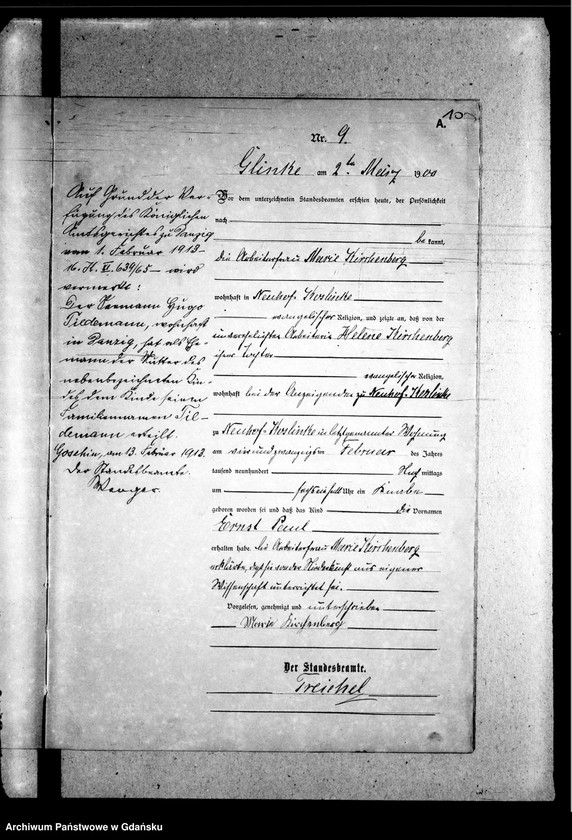 10
A.
Nr. 9.
Glinke am 2ten März 1900
Auf Grund der Ver-
fügung des Königlichen
Amtsgerichtes zu Danzig
vom 1. Februar 1913
16. H. VI. 639/65 — wird
vermerkt:
Der Seemann Hugo
Tiedemann, wohnhaft
in Danzig, hat als Ehe-
mann der Mutter des
nebenbezeichneten Kin-
des dem Kinde seinen
Familiennamen Tie-
demann erteilt.
Goschin, am 13. Februar 1913.
Der Standesbeamte.
Vor dem unterzeichneten Standesbeamten erschien heute, der Persönlichkeit
nach
be kannt,
die Arbeiterfrau Marie Kirschenberg
wohnhaft in Neuhof-Koslinke
evangelischer Religion, und zeigte an, daß von der
unverehelichten Arbeiterin Helene Kirschenberg
ihrer Tochter
evangelischer Religion,
wohnhaft bei der Anzeigenden zu Neuhof-Koslinke
zu Neuhof-Koslinke in letztgenannter Wohnung
am vierundzwanzigsten Februar des Jahres
tausend neunhundert Nachmittags
um sechseinhalb Uhr ein Knabe
geboren worden sei und daß das Kind die Vornamen
Ernst Paul
erhalten habe. Die Arbeiterfrau Marie Kirschenberg
erklärte, daß sie von der Niederkunft aus eigener
Wissenschaft unterrichtet sei.
Vorgelesen, genehmigt und unterschrieben
Marie Kirschenberg
Der Standesbeamte.
Treichel
Archiwum Państwowe w Gdańsku